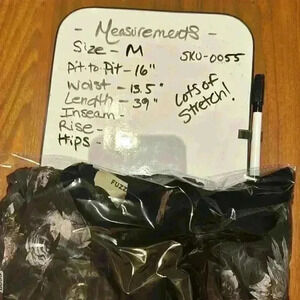 - Measurements -
Size - M
SKU-0055
Pit to Pit - 16"
Waist - 13.5"
Length - 39"
Inseam -
Rise -
Hips
Lots of
Stretch!
FUZZ